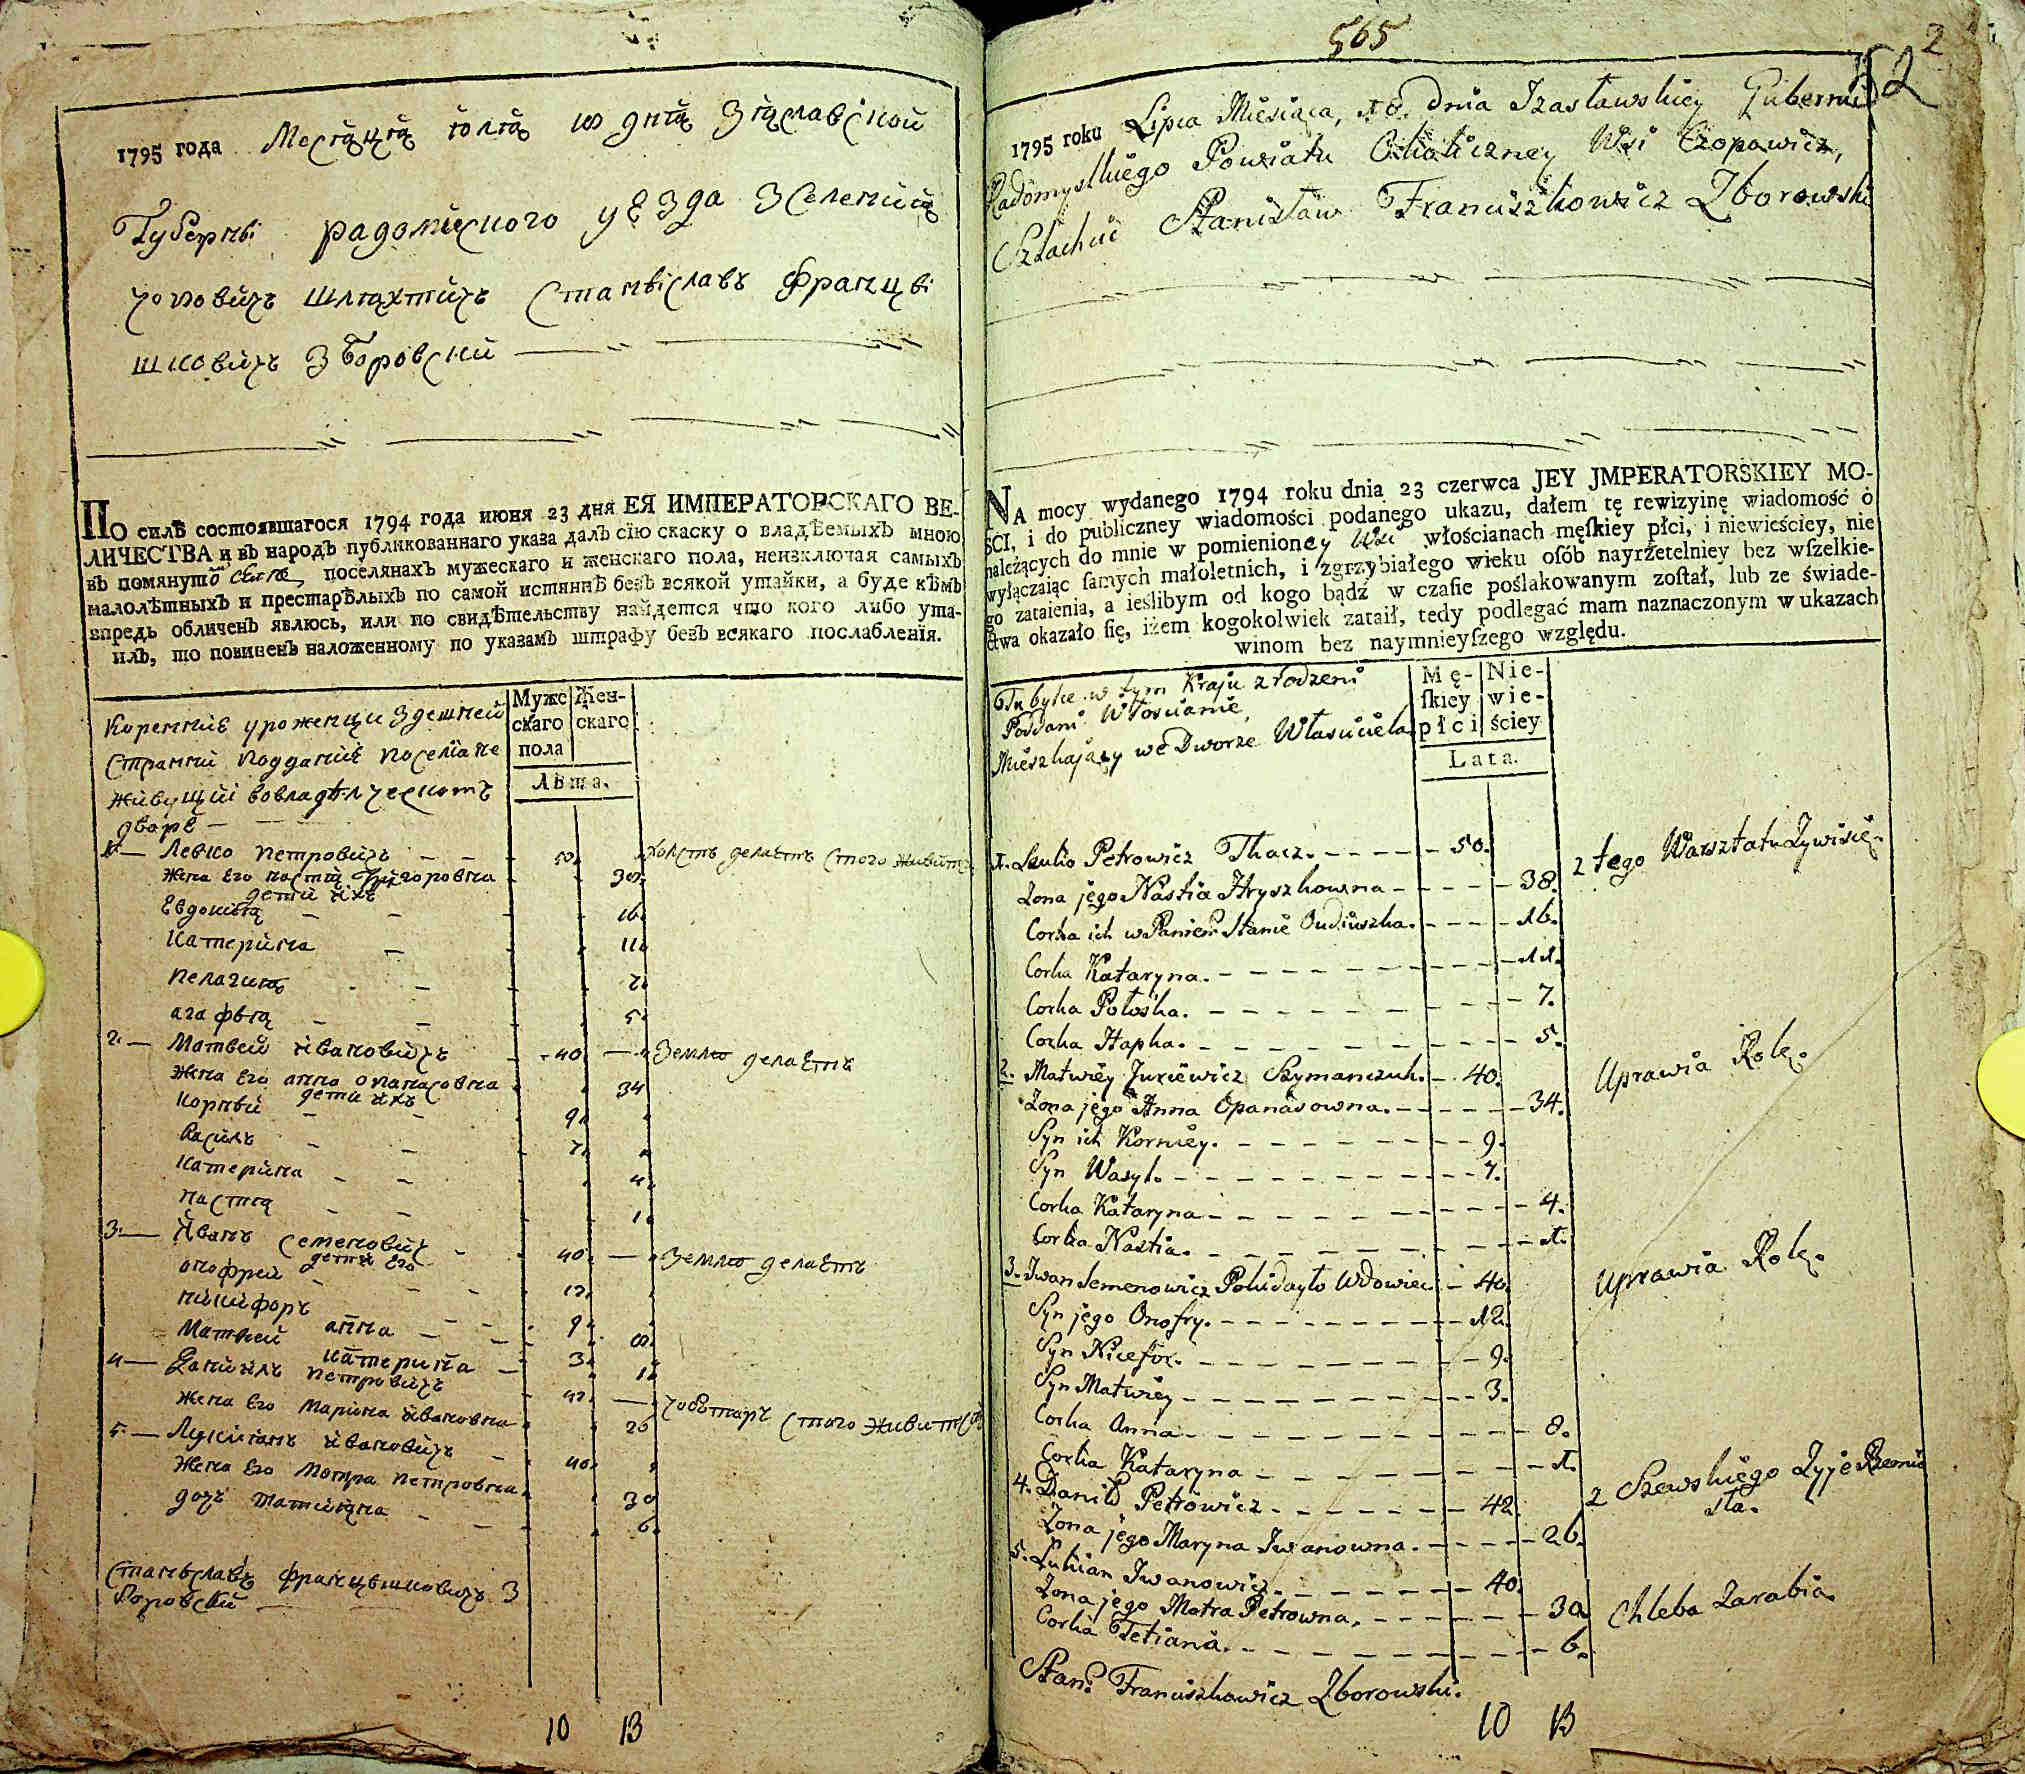 1795 года Месяця июля 10 дня Зяславской
Губернѣи радомыского уезда Зселения
чоповичь шляхтичь Станѣславъ Францѣ
шковичь Зборовски
ПО силѣ состоявшагося 1794 года июня 23 дня ЕЯ ИМПЕРАТОРСКАГО ВЕ-
ЛИЧЕСТВА и въ народъ публикованнаго указа далъ сїю скаску о владѣемыхъ мною
въ помянутô селе поселянахъ мужескаго и женскаго пола, неизключая самыхъ
малолѣтныхъ и престарѣлыхъ по самой истиннѣ безъ всякой утайки, а буде кѣмъ
впредь обличенъ явлюсь, или по свидѣтельству найдется что кого либо ута-
илъ, то повиненъ наложенному по указамъ штрафу безъ всякаго послабленїя.
Муже Жен-
скаго скаго
пола
Лѣта.
Коренние уроженци Здешней
Страни подданние поселяне
живущи вовладѣлческомъ
дворе
1 Левко петровичь 50 холстъ делаетъ стого живитъ
жена Его настя Григоровна 38
дети ихъ
Евдокия 16
Катерина 11
пелагия 7
агафѣя 5
2 Матвей ивановичь 40 Землю делаетъ
жена Его анна опанасовна 34
дети ихъ
Корнѣй 9
Василь 7
Катерина 4
настя 1
3 Иванъ семеновичь 40 Землю делаетъ
дети Его
онофрей 12
никифоръ 9
анна 8
Матвей 3
катерина 1
4 Данииль петровичь 42 чоботарь стого живится
жена Его Марина ивановна 26
5 Лукиянъ ивановичь 40
жена Его Мотра петровна 30
дочь татияна 6
Станѣславъ францѣшковичь З
боровский
10 13
565
2
2
1795 roku Lipca Miesiąca, 10. dnia Izasławskiey Gubernii
Radomyslkiego Powiatu Okoliczney Wsi Czopowicz,
Szlachcic Stanisław Franciszkowicz Zborowski
NA mocy wydanego 1794 roku dnia 23 czerwca JEY JMPERATORSKIEY MO-
ŚCI, i do publiczney wiadomości podanego ukazu, dałem tę rewizyinę wiadomość ó
należących do mnie w pomienioney Wsi włościanach męſkiey płci, i niewieściey, nie
wyłączaiąc ſamych małoletnich, i zgrzybiałego wieku oſób nayrzetelniey bez wſzelkie-
go zataienia, a ieślibym od kogo bądź w czaſie poślakowanym zoſtał, lub ze świade-
ctwa okazało ſię, iżem kogokolwiek zataił, tedy podlegać mam naznaczonym w ukazach
winom bez naymnieyſzego względu.
Tubylce w tym Kraju zrodzeni
Poddani Włoscianie,
Mieszkaiący we Dworze Własciciela
Mę- Nie-
ſkiey wie-
płci ściey
Lata.
1. Lewko Petrowicz Tkacz. 50. z tego Warsztatu Zywi się.
Zona jego Nastia Hryszkowna 38.
Corka ich w Panien. Stanie Oudiuszka. 16.
Corka Kataryna. 11.
Corka Połośka. 7.
Corka Hapka. 5.
2. Matwiey Juriewicz Szymanczuk. 40. Uprawia Rolę.
Zona jego Anna Opanasowna. 34.
Syn ich Korniey. 9.
Syn Wasyl. 7.
Corka Kataryna 4.
Corka Nastia. 1.
3. Iwan Semenowicz Pokidayło Wdowiec 40. Uprawia Rolę.
Syn jego Onofry. 12.
Syn Nicefor. 9.
Syn Matwiey 3.
Corka Anna 8.
Corka Kataryna 1.
4. Daniło Petrowicz 42. z Szewskiego Zyje Rzemio
sła.
Zona jego Maryna Iwanowna. 26.
5. Lukian Iwanowicz. 40. Chleba Zarabia.
Zona jego Motra Petrowna. 30.
Corka Tetiana. 6.
Stan. Franciszkowicz Zborowski.
10 13